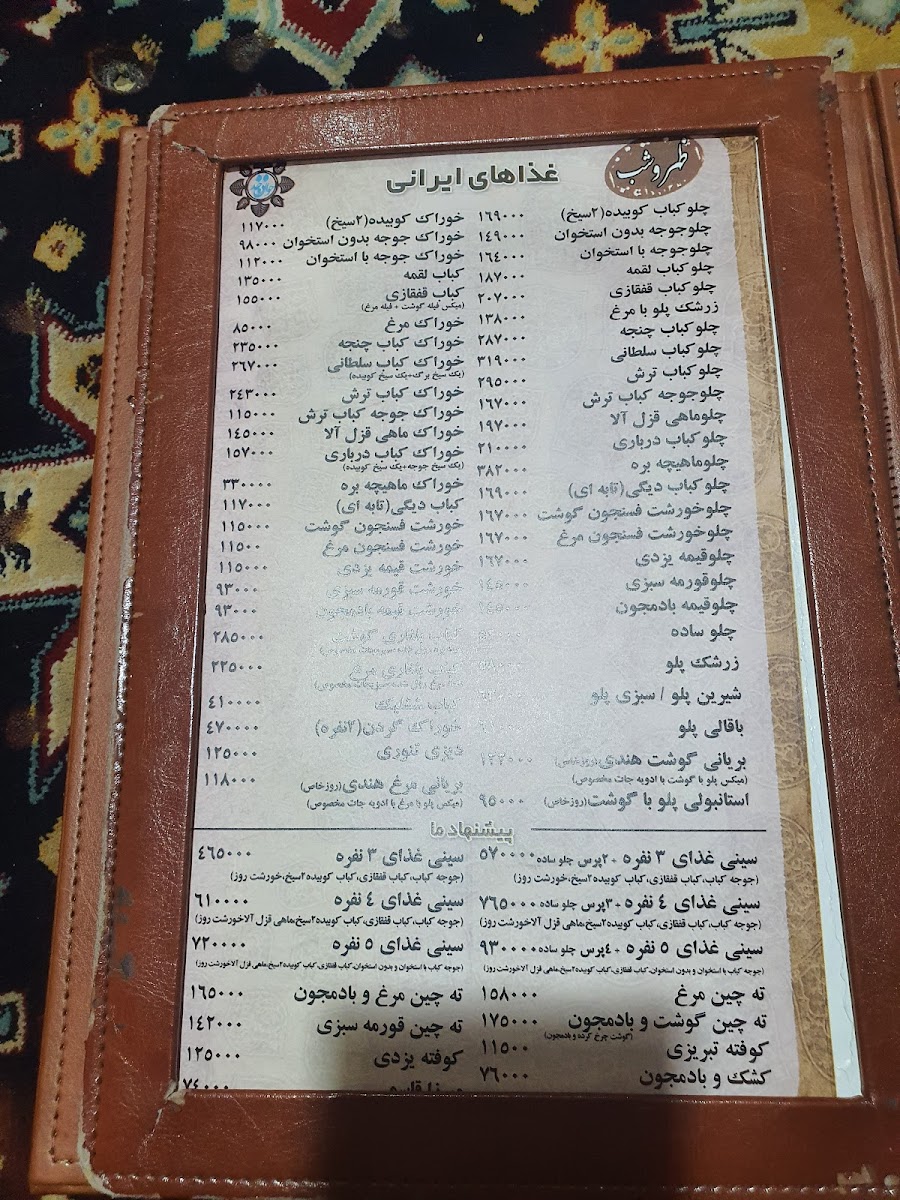 ظهر و شب
غذاهای ایرانی
چلو کباب کوبیده(۲سیخ) ۱۶۹۰۰۰
چلوجوجه بدون استخوان ۱۴۹۰۰۰
چلوجوجه با استخوان ۱۶۴۰۰۰
چلو کباب لقمه ۱۸۷۰۰۰
چلو کباب قفقازی ۲۰۷۰۰۰
زرشک پلو با مرغ ۱۳۸۰۰۰
چلو کباب چنجه ۲۸۷۰۰۰
چلو کباب سلطانی ۳۱۹۰۰۰
چلو کباب ترش ۲۹۵۰۰۰
چلوجوجه کباب ترش ۱۶۷۰۰۰
چلوماهی قزل آلا ۱۹۷۰۰۰
چلو کباب درباری ۲۱۰۰۰۰
چلوماهیچه بره ۳۸۲۰۰۰
چلو کباب دیگی(تابه ای) ۱۶۹۰۰۰
چلوخورشت فسنجون گوشت ۱۶۷۰۰۰
چلوخورشت فسنجون مرغ ۱۶۷۰۰۰
چلوقیمه یزدی ۱۶۷۰۰۰
چلوقورمه سبزی ۱۴۵۰۰۰
چلوقیمه بادمجون
چلو ساده
زرشک پلو
شیرین پلو / سبزی پلو
باقالی پلو
بریانی گوشت هندی(روزخاص) ۱۲۲۰۰۰
(میکس پلو با گوشت با ادویه جات مخصوص)
استانبولی پلو با گوشت(روزخاص) ۹۵۰۰۰
خوراک کوبیده(۲سیخ) ۱۱۷۰۰۰
خوراک جوجه بدون استخوان ۹۸۰۰۰
خوراک جوجه با استخوان ۱۱۲۰۰۰
کباب لقمه ۱۳۵۰۰۰
کباب قفقازی ۱۵۵۰۰۰
(میکس فیله گوشت + فیله مرغ)
خوراک مرغ ۸۵۰۰۰
خوراک کباب چنجه ۲۳۵۰۰۰
خوراک کباب سلطانی ۲۶۷۰۰۰
(یک سیخ برگ+یک سیخ کوبیده)
خوراک کباب ترش ۲۴۳۰۰۰
خوراک جوجه کباب ترش ۱۱۵۰۰۰
خوراک ماهی قزل آلا ۱۴۵۰۰۰
خوراک کباب درباری ۱۵۷۰۰۰
(یک سیخ جوجه+یک سیخ کوبیده)
خوراک ماهیچه بره ۳۳۰۰۰۰
کباب دیگی(تابه ای) ۱۱۷۰۰۰
خورشت فسنجون گوشت ۱۱۵۰۰۰
خورشت فسنجون مرغ ۱۱۵۰۰
خورشت قیمه یزدی ۱۱۵۰۰۰
خورشت قورمه سبزی ۹۳۰۰۰
خورشت قیمه بادمجون ۹۳۰۰۰
کباب بختیاری گوشت ۲۸۵۰۰۰
کباب بختیاری مرغ ۲۲۵۰۰۰
کباب شیشلیک ۴۱۰۰۰۰
خوراک گردن(۲نفره) ۴۷۰۰۰۰
دیزی تنوری ۱۲۵۰۰۰
بریانی مرغ هندی(روزخاص) ۱۱۸۰۰۰
(میکس پلو با مرغ با ادویه جات مخصوص)
پیشنهاد ما
سینی غذای ۳ نفره +۲پرس چلو ساده ۵۷۰۰۰۰
(جوجه کباب،کباب قفقازی،کباب کوبیده۲سیخ،خورشت روز)
سینی غذای ۴ نفره +۳پرس چلو ساده ۷۶۵۰۰۰
(جوجه کباب،کباب قفقازی،کباب کوبیده۲سیخ،ماهی قزل آلاخورشت روز)
سینی غذای ۵ نفره +۴پرس چلو ساده ۹۳۰۰۰۰
(جوجه کباب با استخوان و بدون استخوان،کباب قفقازی،کباب کوبیده۲سیخ،ماهی قزل آلاخورشت روز)
ته چین مرغ ۱۵۸۰۰۰
ته چین گوشت و بادمجون ۱۷۵۰۰۰
(گوشت چرخ کرده و بادمجون)
کوفته تبریزی ۱۱۵۰۰
کشک و بادمجون ۷۶۰۰۰
سینی غذای ۳ نفره ۴۶۵۰۰۰
(جوجه کباب،کباب قفقازی،کباب کوبیده۲سیخ،خورشت روز)
سینی غذای ۴ نفره ۶۱۰۰۰۰
(جوجه کباب،کباب قفقازی،کباب کوبیده۲سیخ،ماهی قزل آلاخورشت روز)
سینی غذای ۵ نفره ۷۲۰۰۰۰
(جوجه کباب با استخوان و بدون استخوان،کباب قفقازی،کباب کوبیده۲سیخ،ماهی قزل آلاخورشت روز)
ته چین مرغ و بادمجون ۱۶۵۰۰۰
ته چین قورمه سبزی ۱۴۲۰۰۰
کوفته یزدی ۱۲۵۰۰۰
۷۴۰۰۰